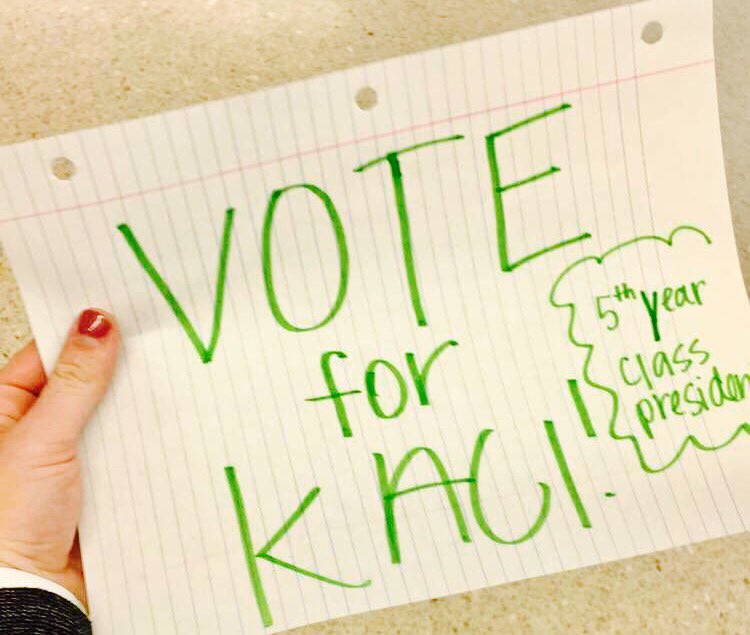 VOTE
for
KACI!
5th year
class
presiden